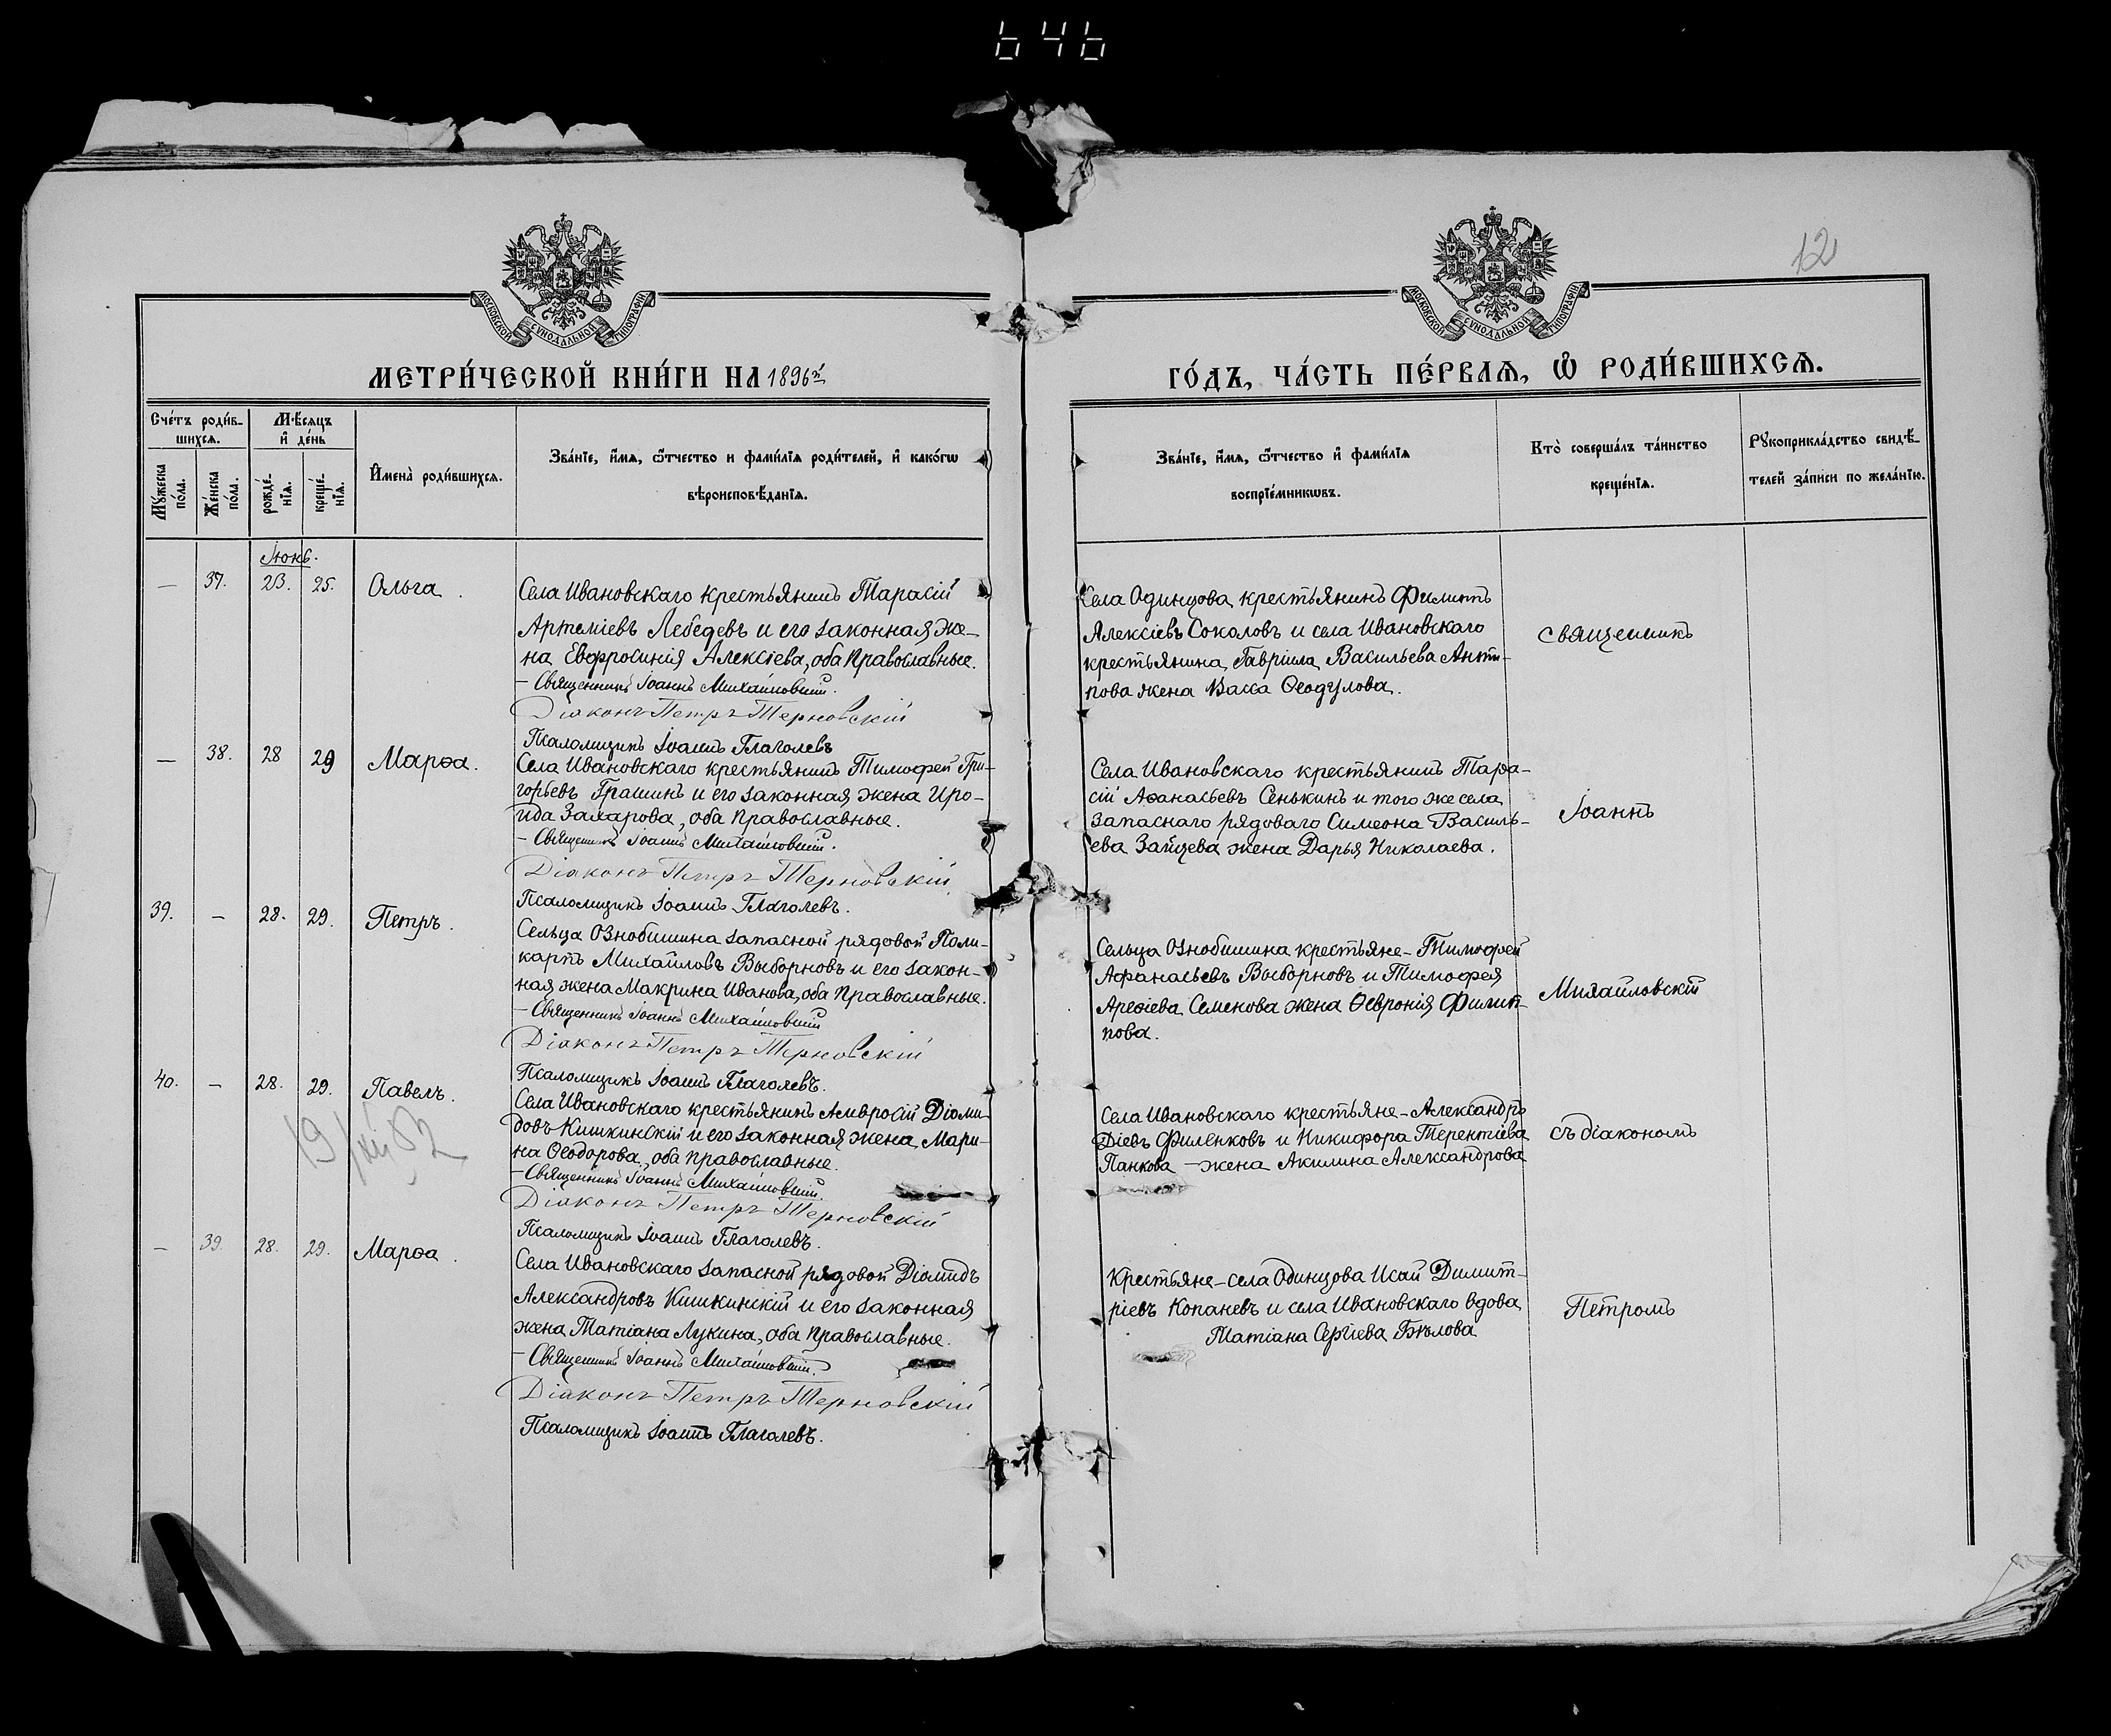 646
12
МОСКОВСКОЙ СѴНОДАЛЬНОЙ ТИПОГРАФІИ
МОСКОВСКОЙ СѴНОДАЛЬНОЙ ТИПОГРАФІИ
МЕТРИ́ЧЕСКОЙ КНИ́ГИ НА 1896й
ГО́ДЪ, ЧА́СТЬ ПЕ́РВАѦ, Ѡ РОДИ́ВШИХСѦ.
Сче́тъ роди́в-
шихсѧ.
Мѣ́сяцъ
и̂ де́нь
Мꙋ́жеска по́ла.
Же́нска по́ла.
рожде́-нїѧ.
креще́-нїѧ.
И҆мена̀ роди́вшихсѧ.
Зва́нїе, и҆́мѧ, ѻ҆́тчество и фами́лїѧ роди́телей, и҆ како́гѡ
вѣроисповѣ́данїѧ.
Зва́нїе, и҆́мѧ, ѻ҆́тчество и҆ фами́лїѧ
воспрїе́мникѡвъ.
Кто̀ соверша́лъ та́инство
креще́нїѧ.
Рꙋкоприкла́дство свидѣ́-
телей за́писи по жела́нїю.
Іюнь.
— 37. 23. 25. Ольга.
Села Ивановскаго крестьянинъ Тарасій
Артеміевъ Лебедевъ и его законная же-
на Евфросинія Алексіева, оба православные.
– Священникъ Іоаннъ Михайловскій.
Діаконъ Петръ Терновскій
Псаломщикъ Іоаннъ Глаголевъ
Села Одинцова крестьянинъ Филиппъ
Алексіевъ Соколовъ и села Ивановскаго
крестьянина Гавріила Васильева Анти-
пова жена Васса Ѳеодулова.
Священникъ
— 38. 28 29 Марѳа.
Села Ивановскаго крестьянинъ Тимофей Гри-
горьевъ Грашинъ и его законная жена Иро-
ида Захарова, оба православные.
– Священникъ Іоаннъ Михайловскій.
Діаконъ Петръ Терновскій
Псаломщикъ Іоаннъ Глаголевъ.
Села Ивановскаго крестьянинъ Тара-
сій Аѳанасьевъ Сенькинъ и того же села
запаснаго рядоваго Симеона Василь-
ева Зайцева жена Дарья Николаева.
Іоаннъ
39. — 28. 29. Петръ.
Сельца Ознобишина запасной рядовой Поли-
карпъ Михайловъ Выборновъ и его закон-
ная жена Макрина Иванова, оба православные.
– Священникъ Іоаннъ Михайловскій
Діаконъ Петръ Терновскій
Псаломщикъ Іоаннъ Глаголевъ.
Сельца Ознобишина крестьяне – Тимофей
Афанасьевъ Выборновъ и Тимофея
Арефіева Семенова жена Ѳевронія Филип-
пова.
Михайловскій
40. — 28. 29. Павелъ.
19/XII 82
Села Ивановскаго крестьянинъ Амвросій Діоми-
довъ Кишкинскій и его законная жена Мари-
на Ѳеодорова, оба православные.
– Священникъ Іоаннъ Михайловскій.
Діаконъ Петръ Терновскій
Псаломщикъ Іоаннъ Глаголевъ.
Села Ивановскаго крестьяне – Александръ
Діевъ Филенковъ и Никифора Терентіева
Панкова – жена Акилина Александрова
съ діакономъ
— 39. 28. 29. Марѳа.
Села Ивановскаго запасной рядовой Діомидъ
Александровъ Кишкинскій и его законная
жена Татіана Лукина, оба православные.
– Священникъ Іоаннъ Михайловскій.
Діаконъ Петръ Терновскій
Псаломщикъ Іоаннъ Глаголевъ.
Крестьяне – села Одинцова Исай Димит-
ріевъ Копаневъ и села Ивановскаго вдова
Татіана Сергіева Бѣлова
Петромъ